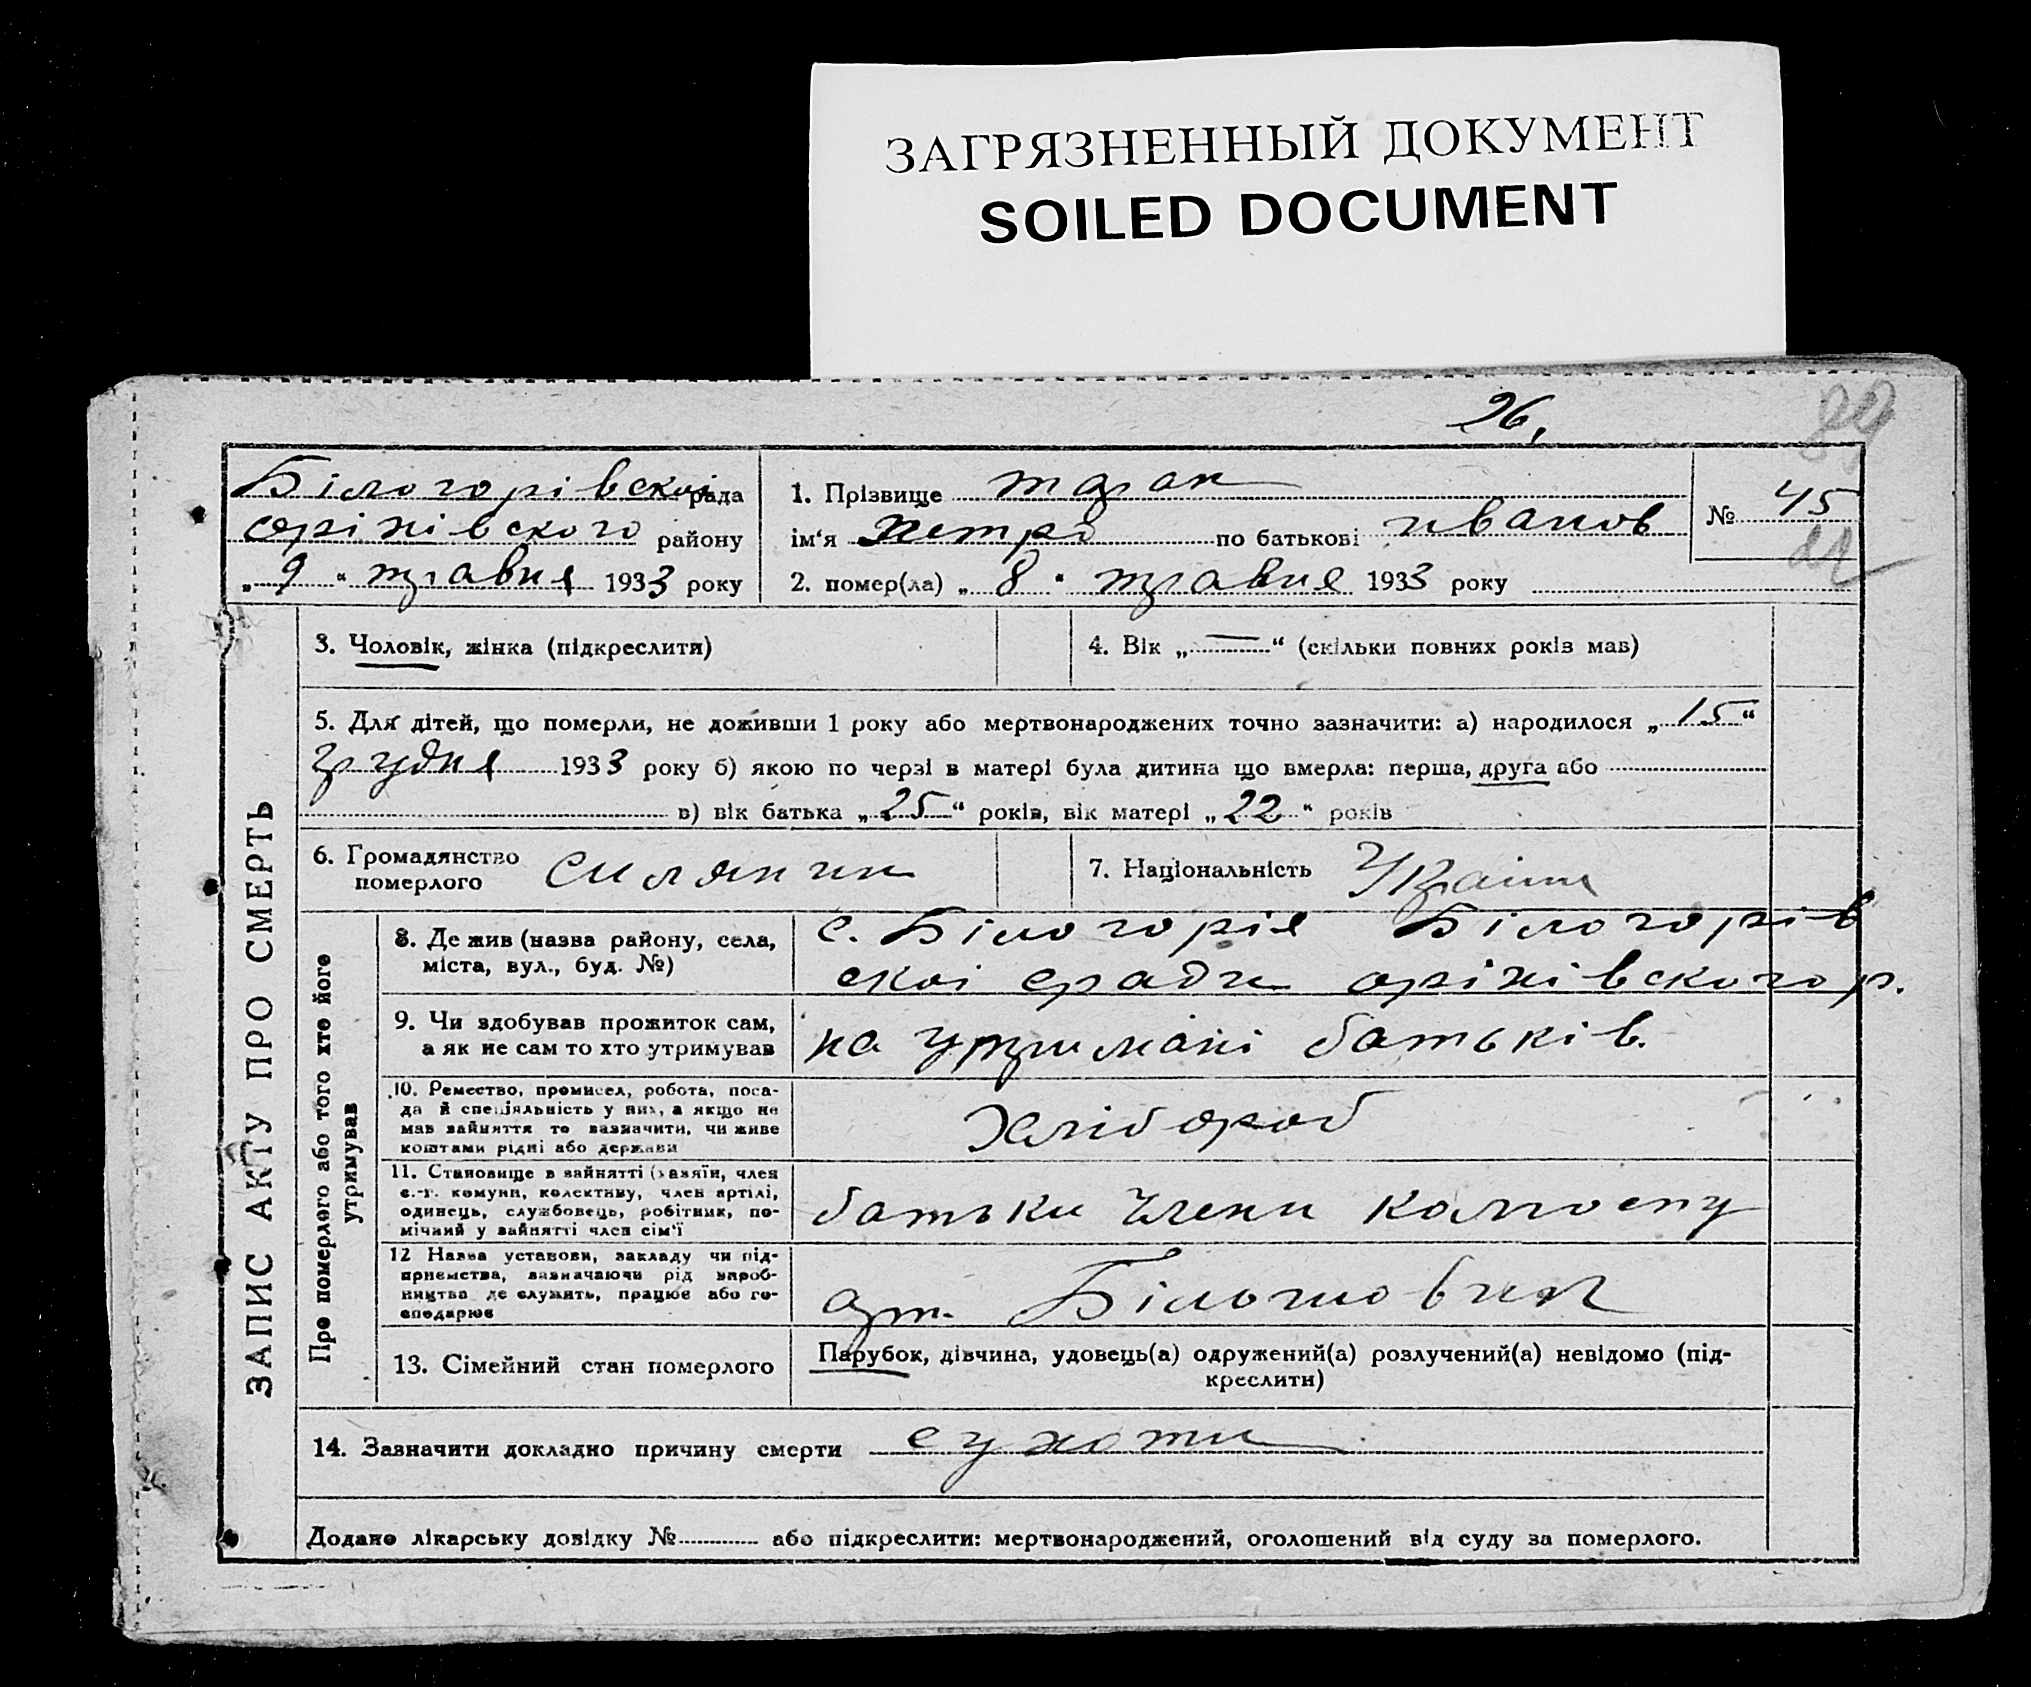 ЗАГРЯЗНЕННЫЙ ДОКУМЕНТ
SOILED DOCUMENT
26,
Білогорівскої рада
оріхівского району
„ 9 “ травня 1933 року
1. Прізвище
ім'я Петро по батькові иванов
2. помер(ла) „ 8 “ травня 1933 року
№ 45
ЗАПИС АКТУ ПРО СМЕРТЬ
3. Чоловік, жінка (підкреслити)
4. Вік „ — “ (скільки повних років мав)
5. Для дітей, що померли, не доживши 1 року або мертвонароджених точно зазначити: а) народилося „ 15 “
грудня 1933 року б) якою по черзі в матері була дитина що вмерла: перша, друга або
в) вік батька „ 25 “ років, вік матері „ 22 “ років
6. Громадянство
померлого силянин
7. Національність
Про померлого або того хто його
утримував
8. Де жив (назва району, села,
міста, вул., буд. №)
с. Білогорія Білогорів
скоі сради оріхівского р.
9. Чи здобував прожиток сам,
а як не сам то хто утримував
на утримані батьків.
10. Ремество, промисел, робота, поса-
да й спеціяльність у них, а якщо не
мав зайняття то вазначити, чи живе
коштами рідні або держави
Хлібороб
11. Становище в зайнятті (хазяїн, член
с.-г. комуни, колективу, член артілі,
одинець, службовець, робітник, по-
мічний у зайнятті член сім'ї
батьки члени колгоспу
12 Назва установи, закладу чи під-
приємства, зазначаючи рід вироб-
ництва де служить, працює або го-
сподарює
арт.
13. Сімейний стан померлого
Парубок, дівчина, удовець(а) одружений(а) розлучений(а) невідомо (під-
креслити)
14. Зазначити докладно причину смерти сухоти
Додано лікарську довідку № або підкреслити: мертвонароджений, оголошений від суду за померлого.